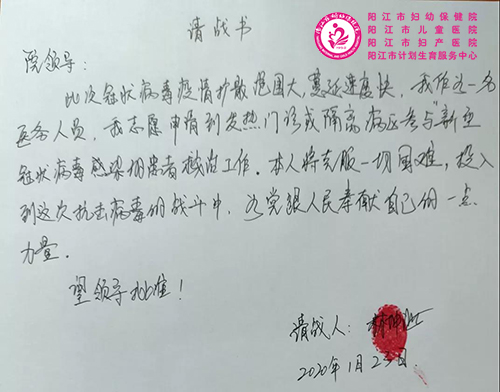 请战书
阳江市妇幼保健院
阳江市儿童医院
阳江市妇产医院
阳江市计划生育服务中心
院领导：
此次冠状病毒疫情扩散范围大，蔓延速度快，我作为一名
医务人员，我志愿申请到发热门诊或隔离病区参与"新型
冠状病毒感染的患者救治工作。本人将克服一切困难，投入
到这次抗击病毒的战斗中，为党跟人民奉献自己的一点
力量。
望领导批准！
请战人：
2020年1月23日